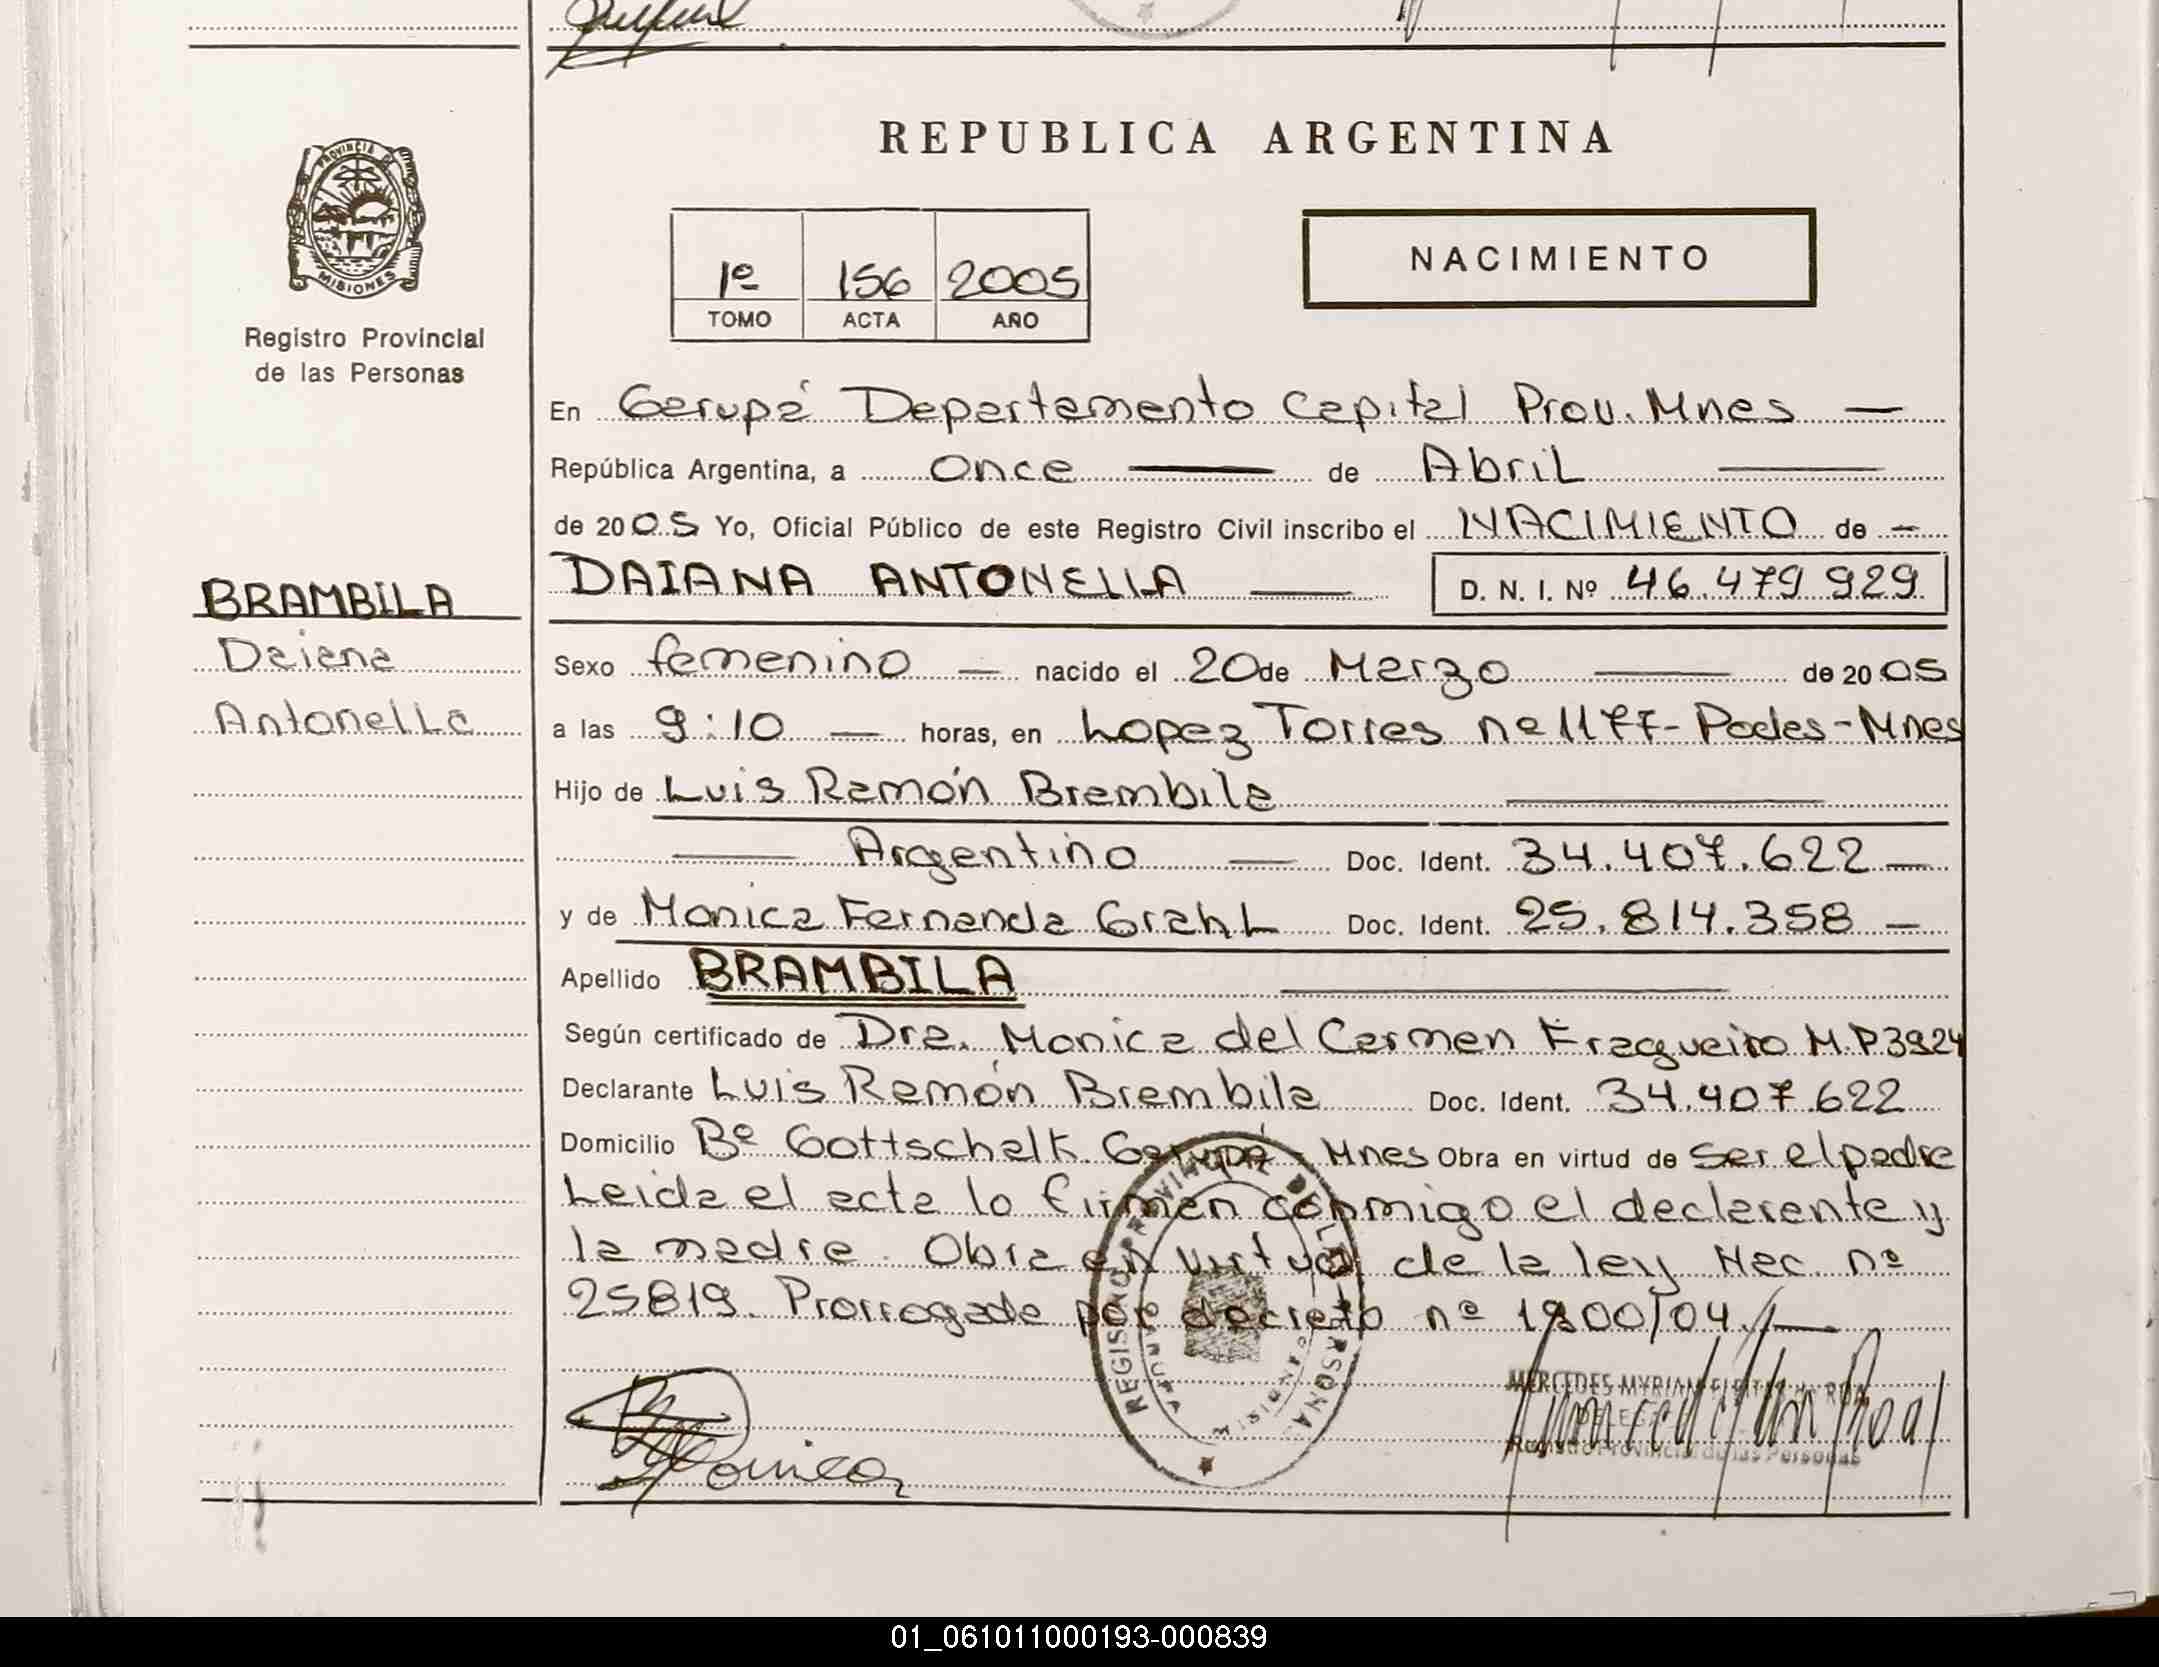 REPUBLICA ARGENTINA
PROVINCIA DE
MISIONES
Registro Provincial
de las Personas
1º 156 2005
TOMO ACTA AÑO
NACIMIENTO
En Garupá Departamento Capital Prov. Mnes —
República Argentina, a once — de Abril —
de 2005 Yo, Oficial Público de este Registro Civil inscribo el NACIMIENTO de —
DAIANA ANTONELLA — D. N. I. Nº 46.479 929
BRAMBILA
Daiana
Antonella
Sexo femenino — nacido el 20 de Marzo — de 2005
a las 9:10 — horas, en Lopez Torres nº 1177 - Pdas - Mnes
Hijo de Luis Ramón Brambila —
— Argentino — Doc. Ident. 34.407.622 —
y de Monica Fernanda Grahl Doc. Ident. 25.814.358 —
Apellido BRAMBILA —
Según certificado de Dra. Monica del Carmen Fragueiro M.P 3924
Declarante Luis Ramón Brambila Doc. Ident. 34.407.622
Domicilio Bº Gottschalk Garupá - Mnes Obra en virtud de ser el padre
Leida el acta lo firman conmigo el declarante y
la madre. Obra en virtud de la ley Nac. nº
25819. Prorrogada por decreto nº 1900/04 —
REGISTRO PROVINCIAL DE LAS PERSONAS
MERCEDES MYRIAN
Registro Provincial de las Personas
Monica
01_061011000193-000839